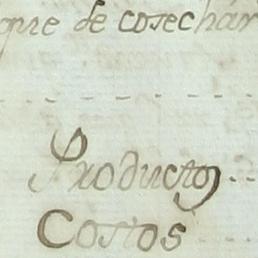 que de cosechár
Productos
Costos